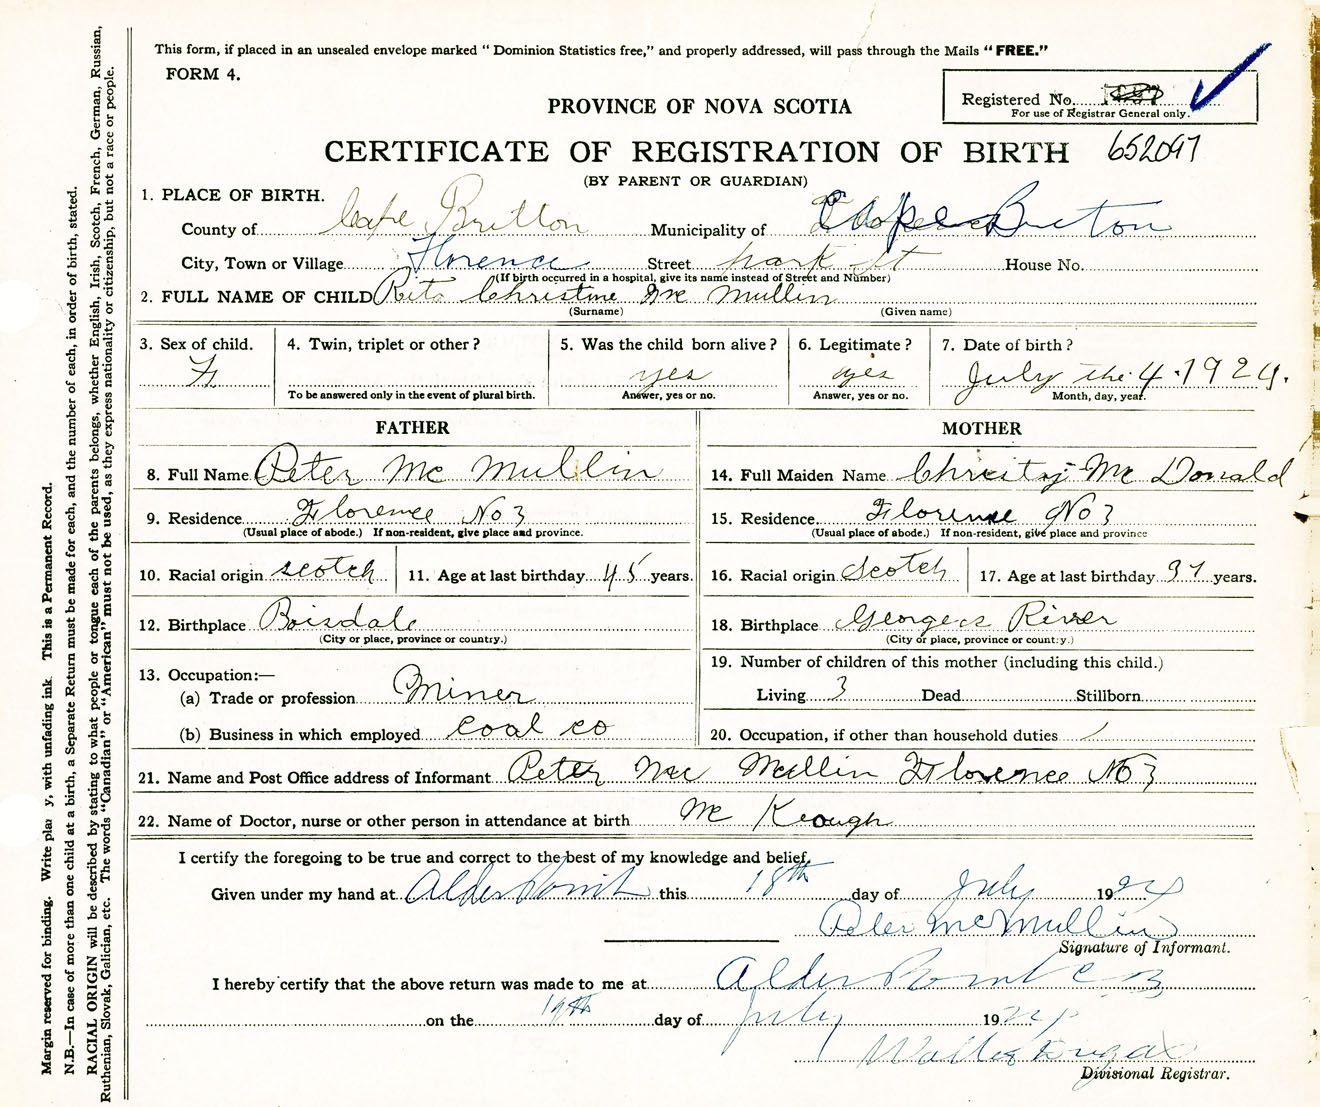 This form, if placed in an unsealed envelope marked "Dominion Statistics free," and properly addressed, will pass through the Mails "FREE."
FORM 4.
Registered No.
For use of Registrar General only.
PROVINCE OF NOVA SCOTIA
CERTIFICATE OF REGISTRATION OF BIRTH 652097
(BY PARENT OR GUARDIAN)
1. PLACE OF BIRTH.
County of Cape Britton Municipality of Cape Breton
City, Town or Village Florence Street park st House No.
(If birth occurred in a hospital, give its name instead of Street and Number)
2. FULL NAME OF CHILD Rita Christine Mc Mullin
(Surname) (Given name)
3. Sex of child. 4. Twin, triplet or other? 5. Was the child born alive? 6. Legitimate? 7. Date of birth?
F yes yes July the 4. 1924.
To be answered only in the event of plural birth. Answer, yes or no. Answer, yes or no. Month, day, year.
FATHER MOTHER
8. Full Name Peter Mc Mullin 14. Full Maiden Name Christy Mc Donald
9. Residence Florence No 3 15. Residence Florence No 3
(Usual place of abode.) If non-resident, give place and province. (Usual place of abode.) If non-resident, give place and province
10. Racial origin scotch 11. Age at last birthday 45 years. 16. Racial origin Scotch 17. Age at last birthday 37 years.
12. Birthplace Boisdale 18. Birthplace Georges River
(City or place, province or country.) (City or place, province or country.)
13. Occupation:— 19. Number of children of this mother (including this child.)
(a) Trade or profession Miner Living 3 Dead Stillborn
(b) Business in which employed coal co 20. Occupation, if other than household duties /
21. Name and Post Office address of Informant Peter Mc Mullin Florence No 3
22. Name of Doctor, nurse or other person in attendance at birth Mc Keough
I certify the foregoing to be true and correct to the best of my knowledge and belief.
Given under my hand at Alder Point this 18th day of July 1924
Peter McMullin
Signature of Informant.
I hereby certify that the above return was made to me at Alder Point C B
on the 19th day of July 1924
Divisional Registrar.
Margin reserved for binding. Write plai y, with unfading ink This is a Permanent Record.
N.B.—In case of more than one child at a birth, a Separate Return must be made for each, and the number of each, in order of birth, stated.
RACIAL ORIGIN will be described by stating to what people or tongue each of the parents belongs, whether English, Irish, Scotch, French, German, Russian,
Ruthenian, Slovak, Galician, etc. The words "Canadian" or "American" must not be used, as they express nationality or citizenship, but not a race or people.